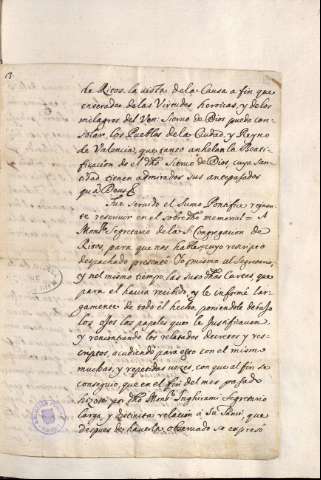 de Ritos, la vista de la Causa a fin que
enterado de las Virtudes heroicas, y de los
milagros del Ven. Siervo de Dios pueda con-
solar los Pueblos de la Ciudad, y Reyno
de Valencia, que tanto anhelan la Beati-
ficacion de el dho Siervo de Dios, cuya San-
tidad tienen admirada sus antepasados
quâ Deus &
Fue servido el Sumo Pontifice
rescrivir en el sobre dho memorial = A
Monsr Secretario de la S. Congregacion de
Ritos, para que nos hable, cuyo rescripto
despachado presenté Yo mismo al Segretario,
y al mismo tiempo las suso dhas Cartas que
para el havia recibido, y le informé lar-
gamente de todo el hecho, poniendole debajo
los ojos los papeles que lo Justificavan,
y mostrandole los relatados decretos y res-
criptos, acudiendo para esto con el mismo
muchas, y repetidas vezes, con que al fin se
consiguio, que en el fin del mes pasado
hiziese por dho Monsr Inghirami Segretario
larga, y distinta relacion a Su Santd, que
despues de haverla observado se expresó